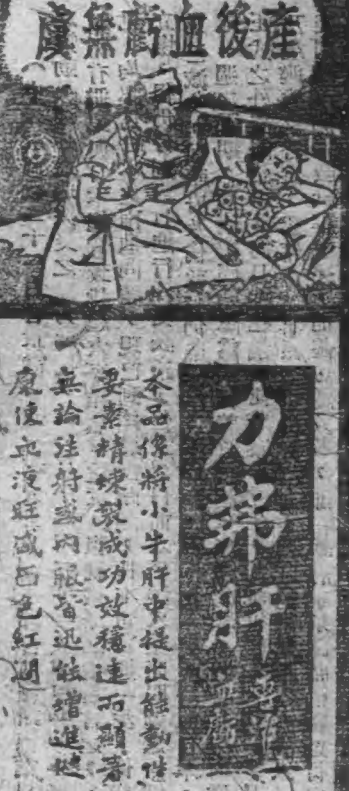 產後血虧無虞
力弗肝
專治
血虧
本品係將小牛肝中提出能動性
要素精煉製成功效穩速而顯著
無論注射或內服皆迅能增進健
康使血液旺盛面色紅潤